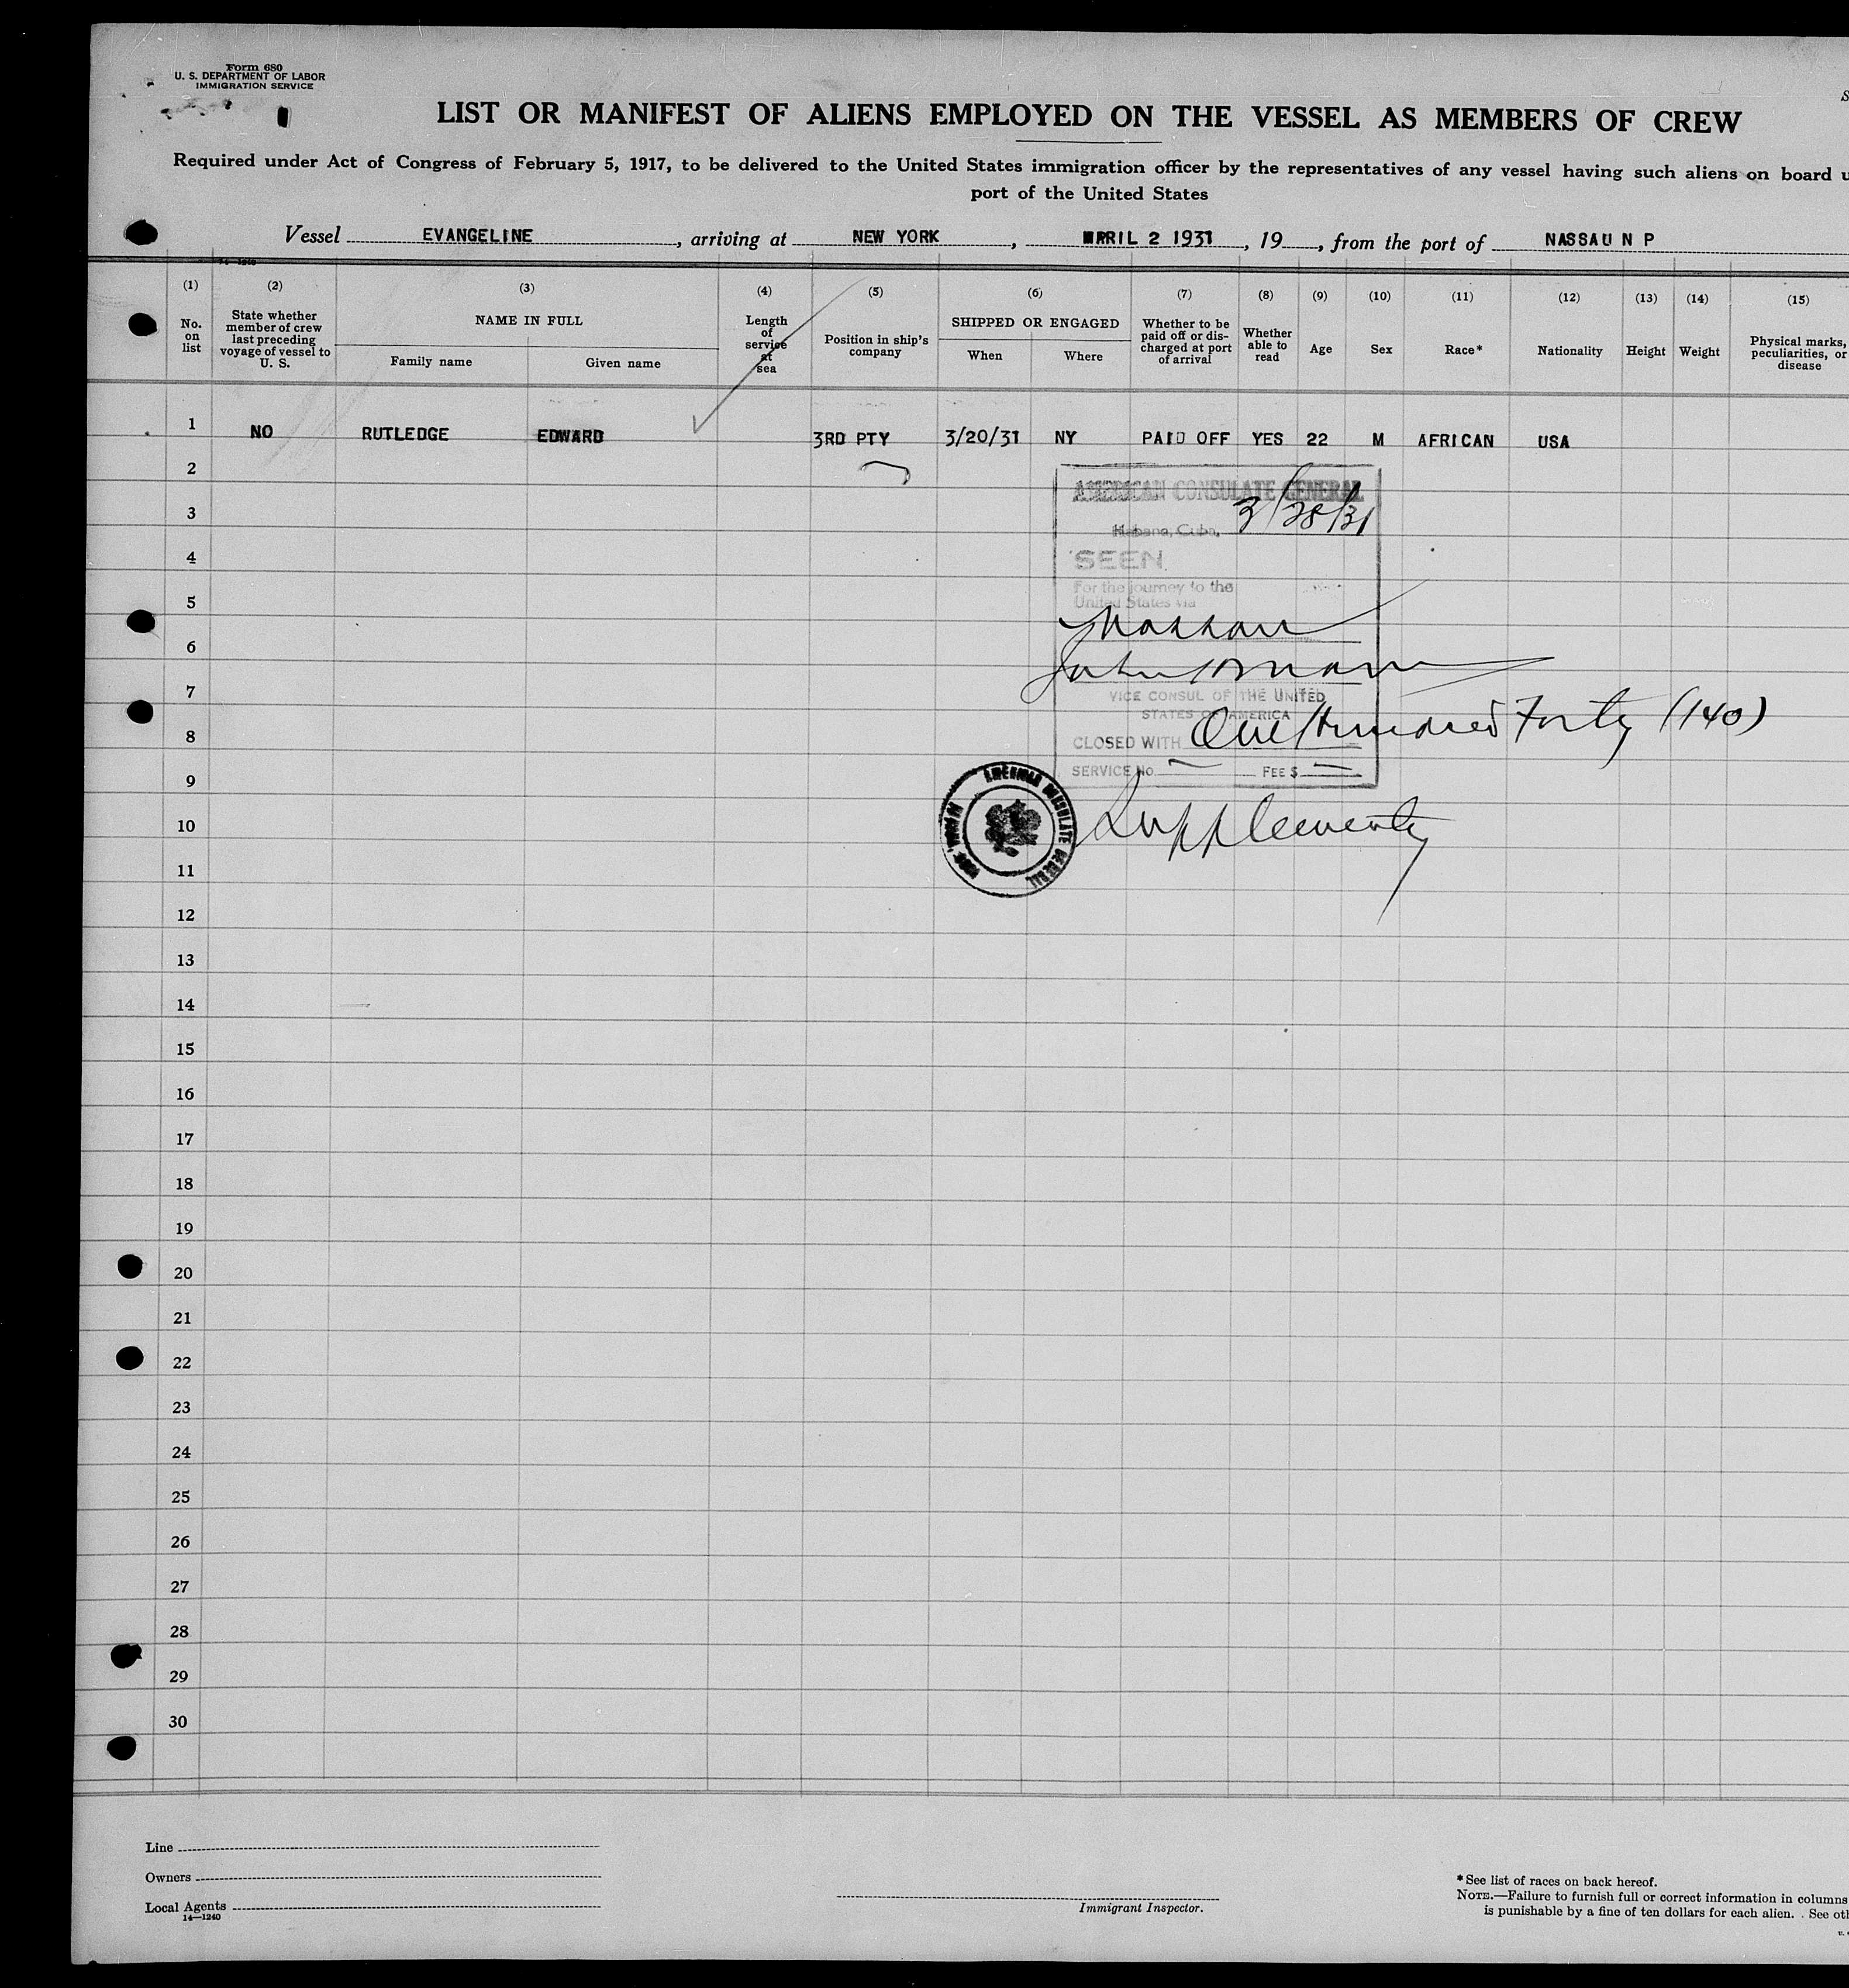 Form 680
U. S. DEPARTMENT OF LABOR
IMMIGRATION SERVICE
LIST OR MANIFEST OF ALIENS EMPLOYED ON THE VESSEL AS MEMBERS OF CREW
Required under Act of Congress of February 5, 1917, to be delivered to the United States immigration officer by the representatives of any vessel having such aliens on board
port of the United States
Vessel EVANGELINE, arriving at NEW YORK, 2 1931, 19, from the port of NASSAU N P
(1) (2) (3) (4) (5) (6) (7) (8) (9) (10) (11) (12) (13) (14) (15)
No. on list
State whether member of crew last preceding voyage of vessel to U. S.
NAME IN FULL
Family name
Given name
Length of service at sea
Position in ship's company
SHIPPED OR ENGAGED
When
Where
Whether to be paid off or discharged at port of arrival
Whether able to read
Age
Sex
Race*
Nationality
Height
Weight
Physical marks, peculiarities, or disease
1 NO RUTLEDGE EDWARD 3RD PTY 3/20/31 NY PAID OFF YES 22 M AFRICAN USA
2
AMERICAN CONSULATE GENERAL
3
Habana, Cuba, 3/28/31
4
SEEN
For the journey to the
5
United States via
Nassau
6
7
VICE CONSUL OF THE UNITED
STATES OF AMERICA
8
CLOSED WITH One Hundred Forty (140)
SERVICE No. FEE $
9
10
11
12
13
14
15
16
17
18
19
20
21
22
23
24
25
26
27
28
29
30
Line
Owners
Local Agents
14—1240
Immigrant Inspector.
*See list of races on back hereof.
NOTE.—Failure to furnish full or correct information in columns
is punishable by a fine of ten dollars for each alien. See